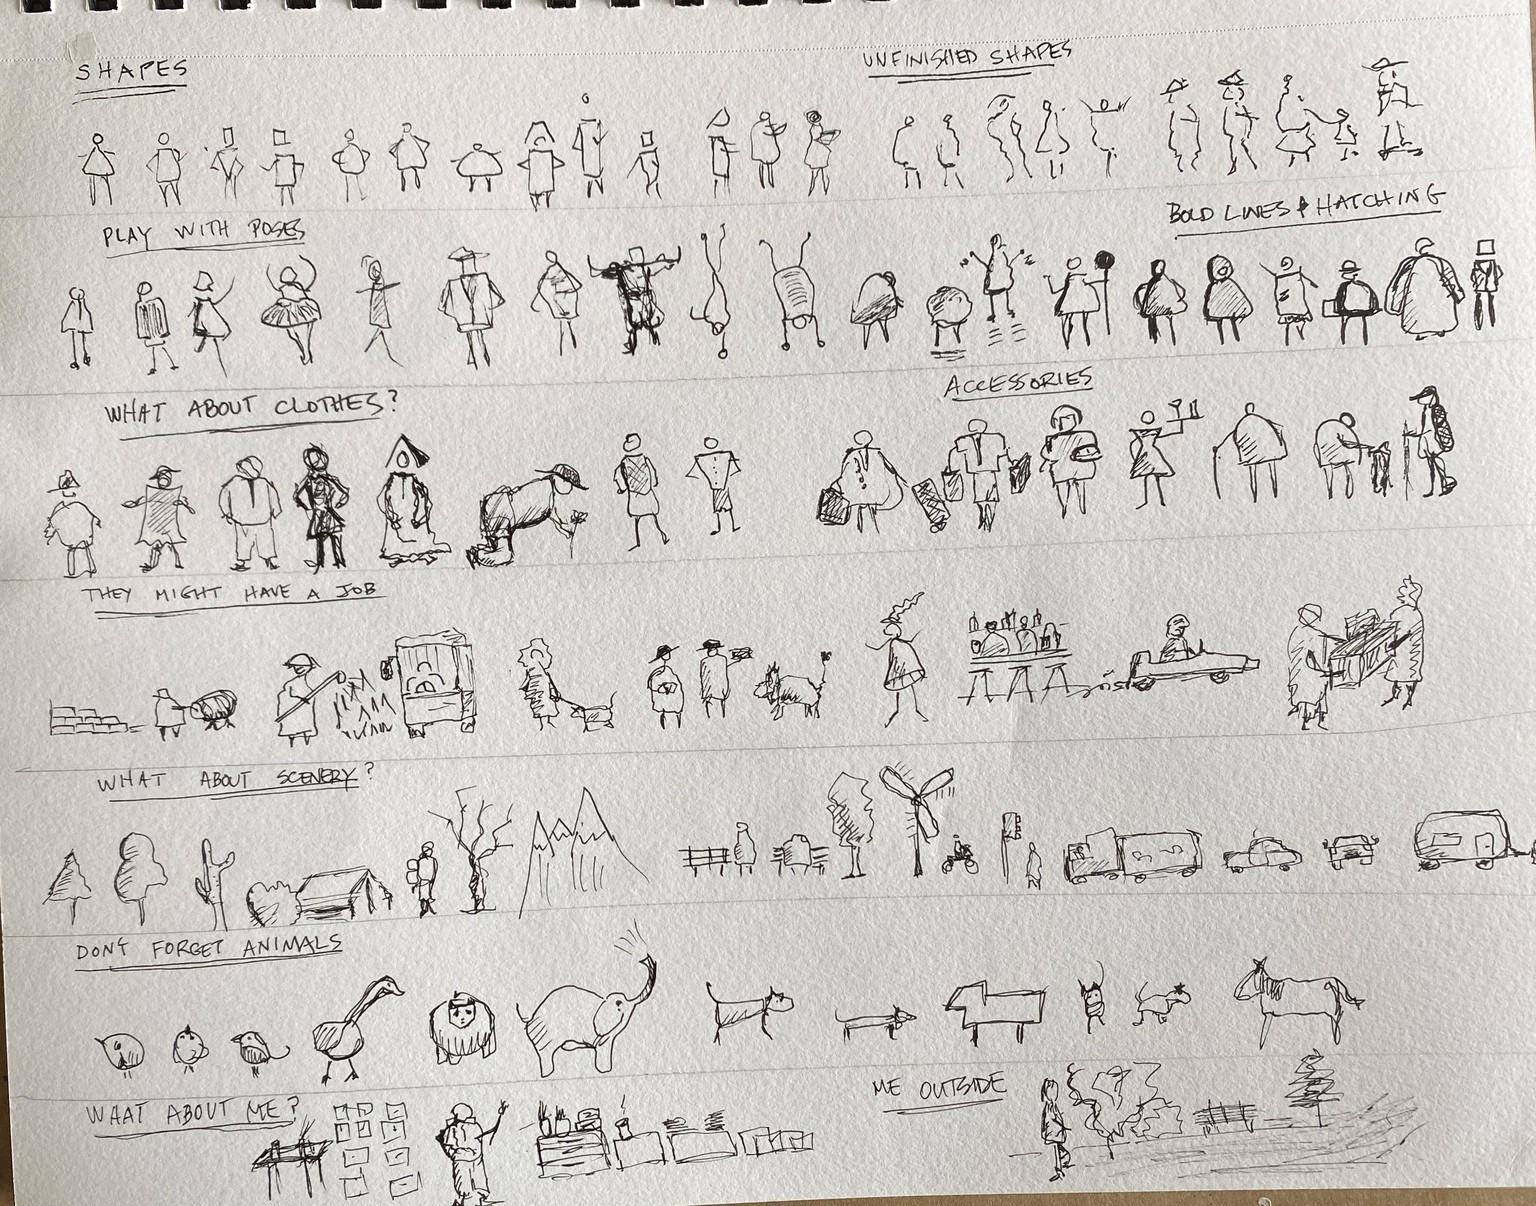 SHAPES
UNFINISHED SHAPES
PLAY WITH POSES
BOLD LINES & HATCHING
WHAT ABOUT CLOTHES?
ACCESSORIES
THEY MIGHT HAVE A JOB
WHAT ABOUT SCENERY?
DON'T FORGET ANIMALS
WHAT ABOUT ME?
ME OUTSIDE